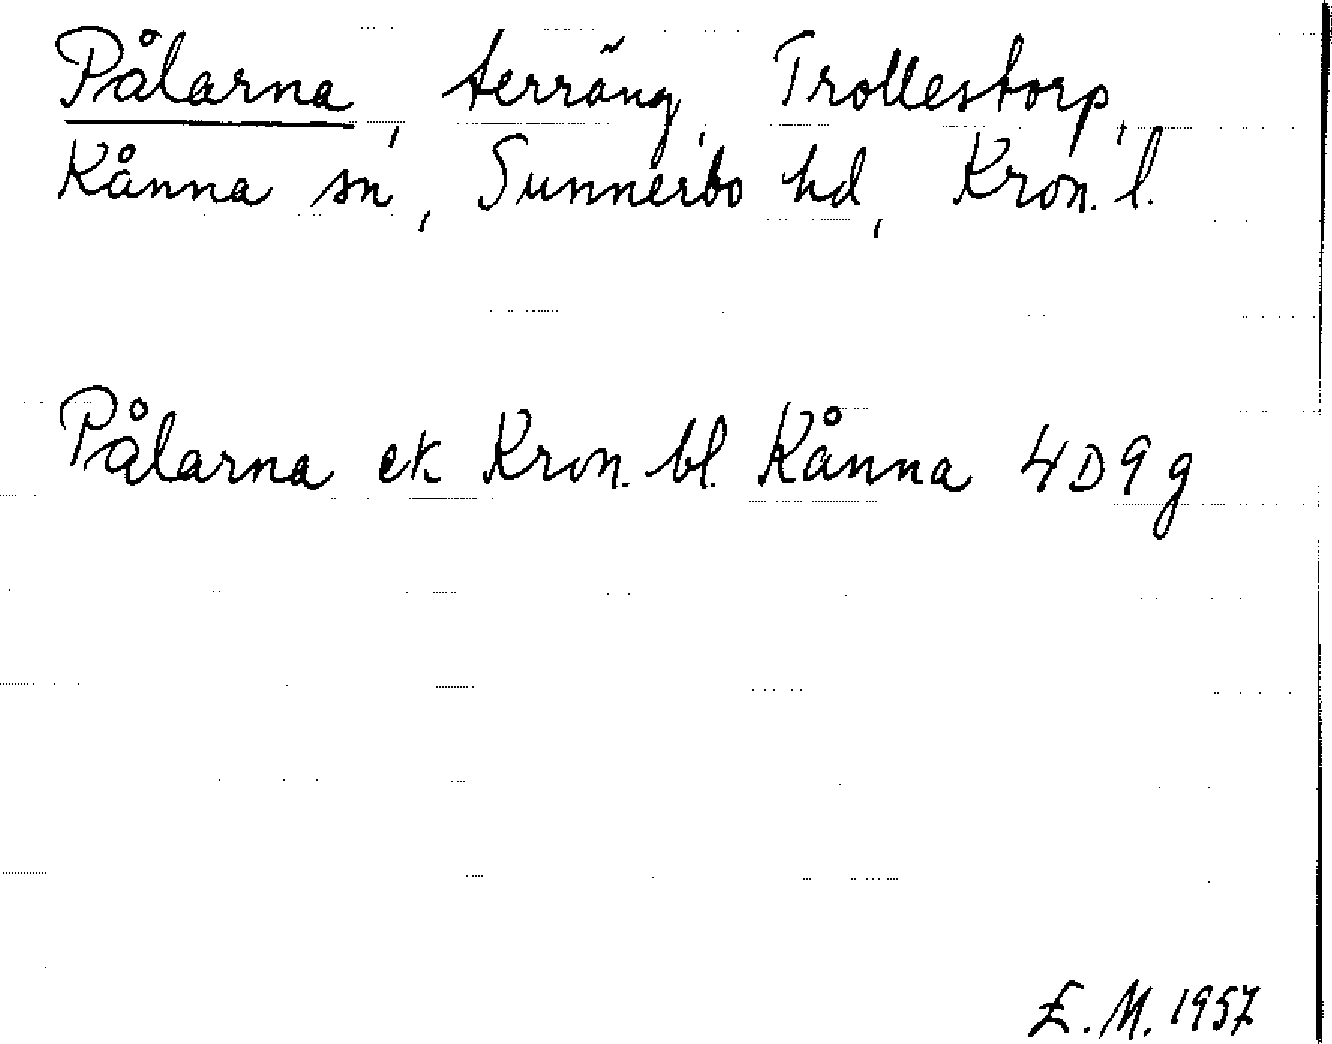 Pålarna, terräng, Trollestorp,
Kånna sn, Sunnerbo hd, Kron. l.
Pålarna ek Kron. bl. Kånna 4D9g
E. M. 1957